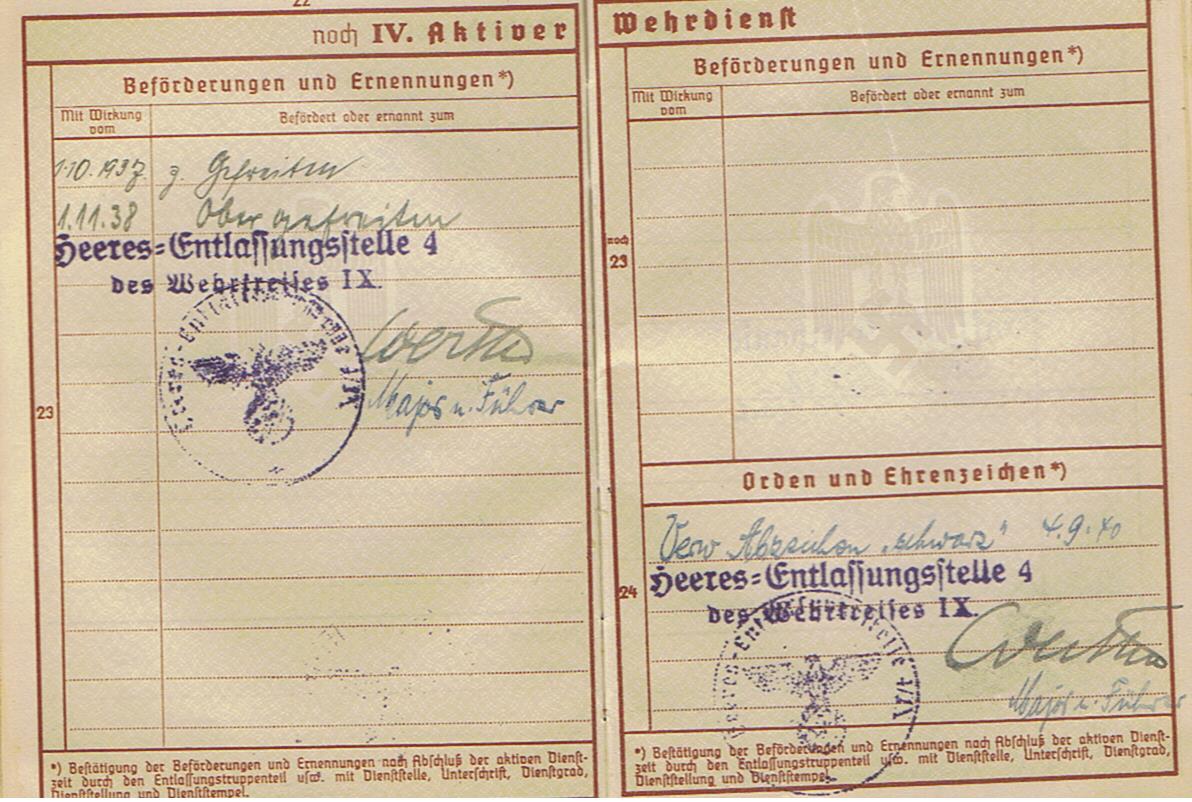 22
noch IV. Aktiver
Beförderungen und Ernennungen*)
Mit Wirkung vom
Befördert oder ernannt zum
1.10.1937 z. Gefreiten
1.11.38 Obergefreiten
Heeres=Entlassungsstelle 4
des Wehrkreises IX.
Major u. Führer
23
*) Bestätigung der Beförderungen und Ernennungen nach Abschluß der aktiven Dienst-
zeit durch den Entlassungstruppenteil usw. mit Dienststelle, Unterschrift, Dienstgrad,
Dienststellung und Dienststempel.
Wehrdienst
Beförderungen und Ernennungen*)
Mit Wirkung vom
Befördert oder ernannt zum
noch
23
Orden und Ehrenzeichen*)
Verw Abzeichen „schwarz" 4.9.40
Heeres=Entlassungsstelle 4
24
des Wehrkreises IX.
Major u. Führer
*) Bestätigung der Beförderungen und Ernennungen nach Abschluß der aktiven Dienst-
zeit durch den Entlassungstruppenteil usw. mit Dienststelle, Unterschrift, Dienstgrad,
Dienststellung und Dienststempel.